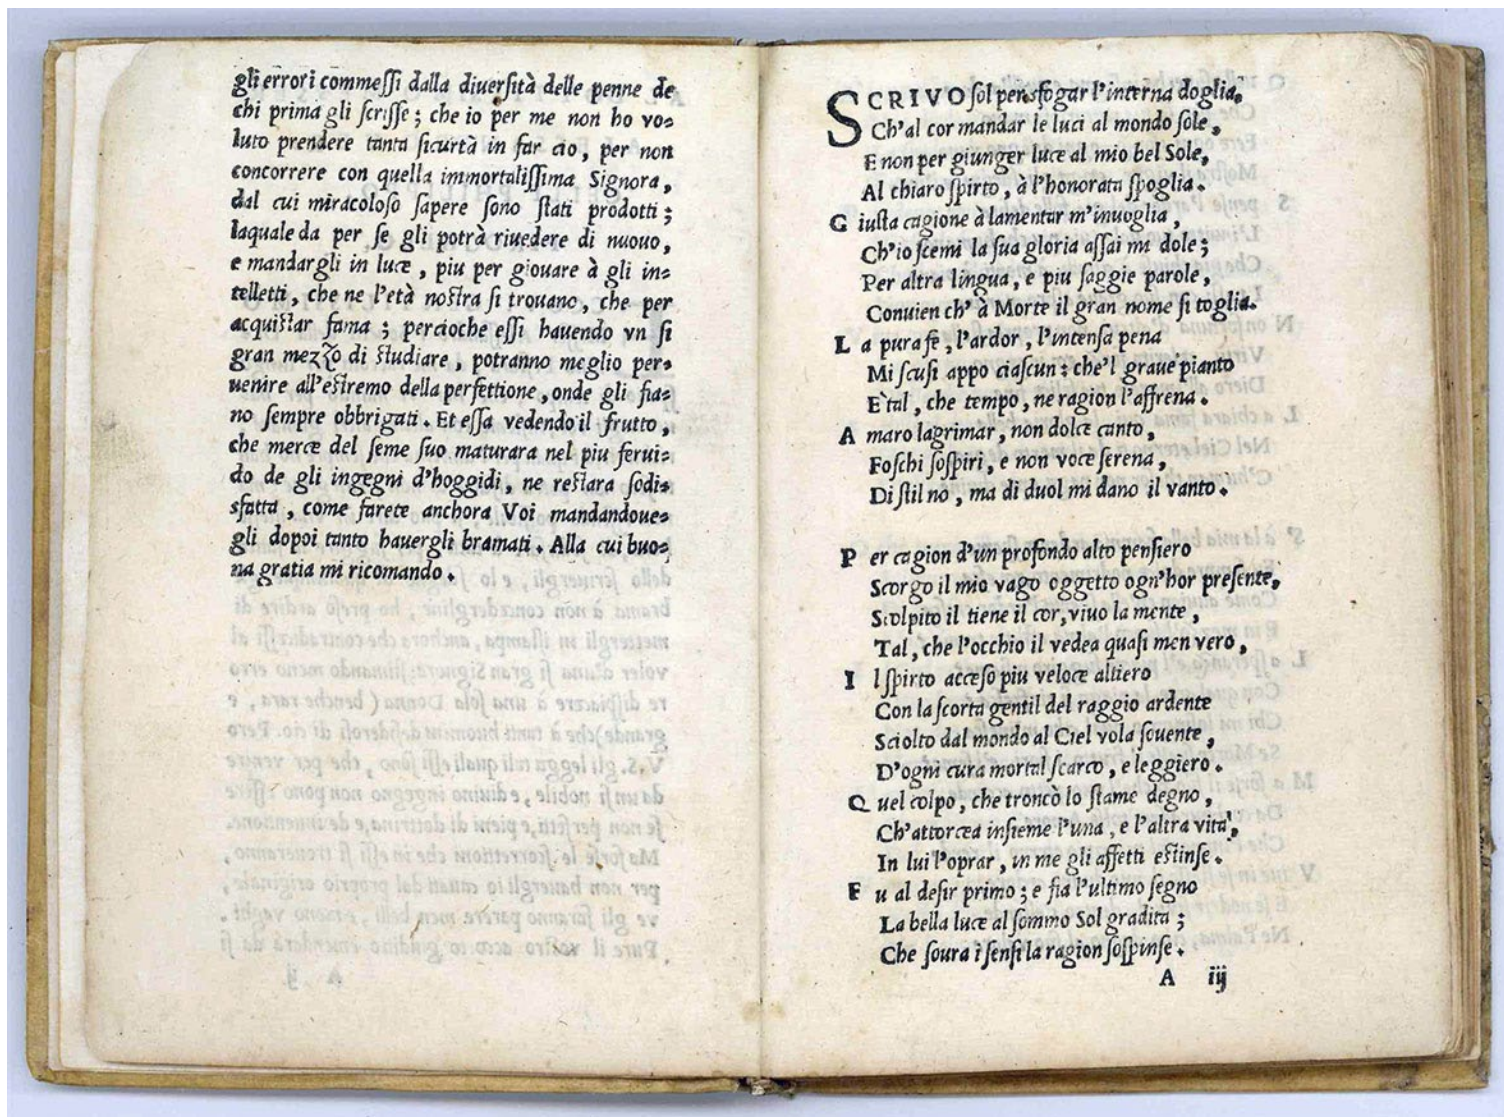 gli errori commessi dalla diversità delle penne de
chi prima gli scrisse; che io per me non ho vo=
luto prendere tanta sicurtà in far cio, per non
concorrere con quella immortalissima Signora,
dal cui miracoloso sapere sono stati prodotti;
laquale da per se gli potrà riuedere di nuouo,
e mandargli in luce, piu per giouare à gli in=
telletti, che ne l'età nostra si trouano, che per
acquistar fama; percioche essi hauendo vn si
gran mezzo di studiare, potranno meglio per=
uenire all'estremo della perfettione, onde gli fia=
no sempre obbrigati. Et essa vedendo il frutto,
che merce del seme suo maturara nel piu ferui=
do de gli ingegni d'hoggidi, ne restara sodi=
sfatta, come farete anchora Voi mandandoue=
gli dopoi tanto hauergli bramati. Alla cui buo=
na gratia mi ricomando.
SCRIVO sol per sfogar l'interna doglia,
Ch'al cor mandar le luci al mondo sole,
E non per giunger luce al mio bel Sole,
Al chiaro spirto, à l'honorata spoglia.
G iusta cagione à lamentar m'inuoglia,
Ch'io scemi la sua gloria assai mi dole;
Per altra lingua, e piu saggie parole,
Conuien ch'à Morte il gran nome si toglia.
L a pura fe, l'ardor, l'intensa pena
Mi scusi appo ciascun: che'l graue pianto
E' tal, che tempo, ne ragion l'affrena.
A maro lagrimar, non dolce canto,
Foschi sospiri, e non voce serena,
Di stil no, ma di duol mi dano il vanto.
P er cagion d'un profondo alto pensiero
Scorgo il mio vago oggetto ogn'hor presente,
Scolpito il tiene il cor, viuo la mente,
Tal, che l'occhio il vedea quasi men vero,
I l spirto acceso piu veloce altiero
Con la scorta gentil del raggio ardente
Sciolto dal mondo al Ciel vola souente,
D'ogni cura mortal scarco, e leggiero.
Q uel colpo, che troncò lo stame degno,
Ch'attorcea insieme l'una, e l'altra vita,
In lui l'oprar, in me gli affetti estinse.
F u al desir primo; e fia l'ultimo segno
La bella luce al sommo Sol gradita;
Che soura i sensi la ragion sospinse.
A iij